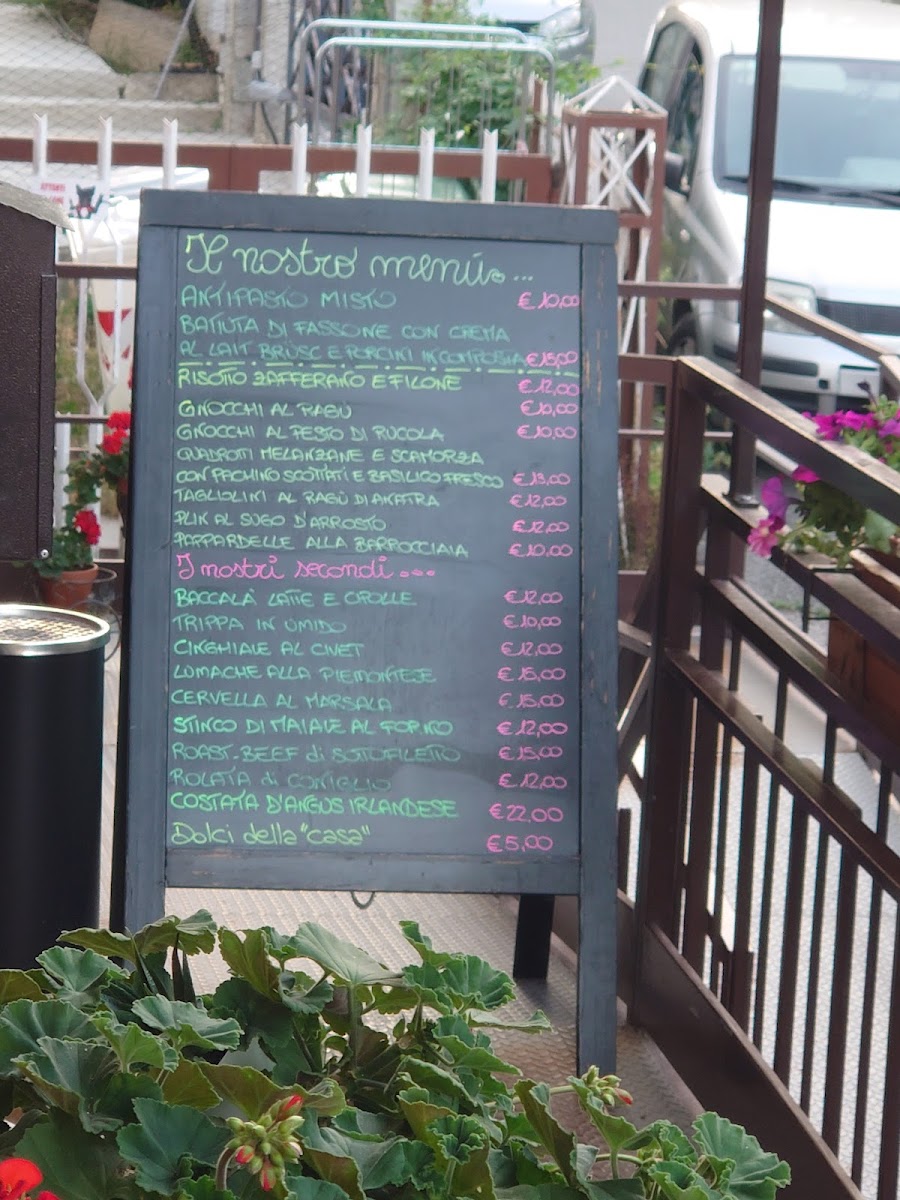 ATTENTI
Il nostro menù...
ANTIPASTO MISTO €10,00
BATTUTA DI FASSONE CON CREMA
AL LAIT BRÜSC E PORCINI IN COMPOSTA €15,00
RISOTTO ZAFFERANO E FILONE €12,00
GNOCCHI AL RAGÙ €10,00
GNOCCHI AL PESTO DI RUCOLA €10,00
QUADROTTI MELANZANE E SCAMORZA
CON PACHINO SCOTTATI E BASILICO FRESCO €13,00
TAGLIOLINI AL RAGÙ DI ANATRA €12,00
PLIN AL SUGO D'ARROSTO €12,00
PAPPARDELLE ALLA BARROCCIAIA €10,00
I nostri secondi....
BACCALÀ LATTE E CIPOLLE €12,00
TRIPPA IN UMIDO €10,00
CINGHIALE AL CIVET €12,00
LUMACHE ALLA PIEMONTESE €15,00
CERVELLA AL MARSALA €15,00
STINCO DI MAIALE AL FORNO €12,00
ROAST-BEEF di SOTTOFILETTO €15,00
ROLATA di CONIGLIO €12,00
COSTATA D'ANGUS IRLANDESE €22,00
Dolci della "casa" €5,00